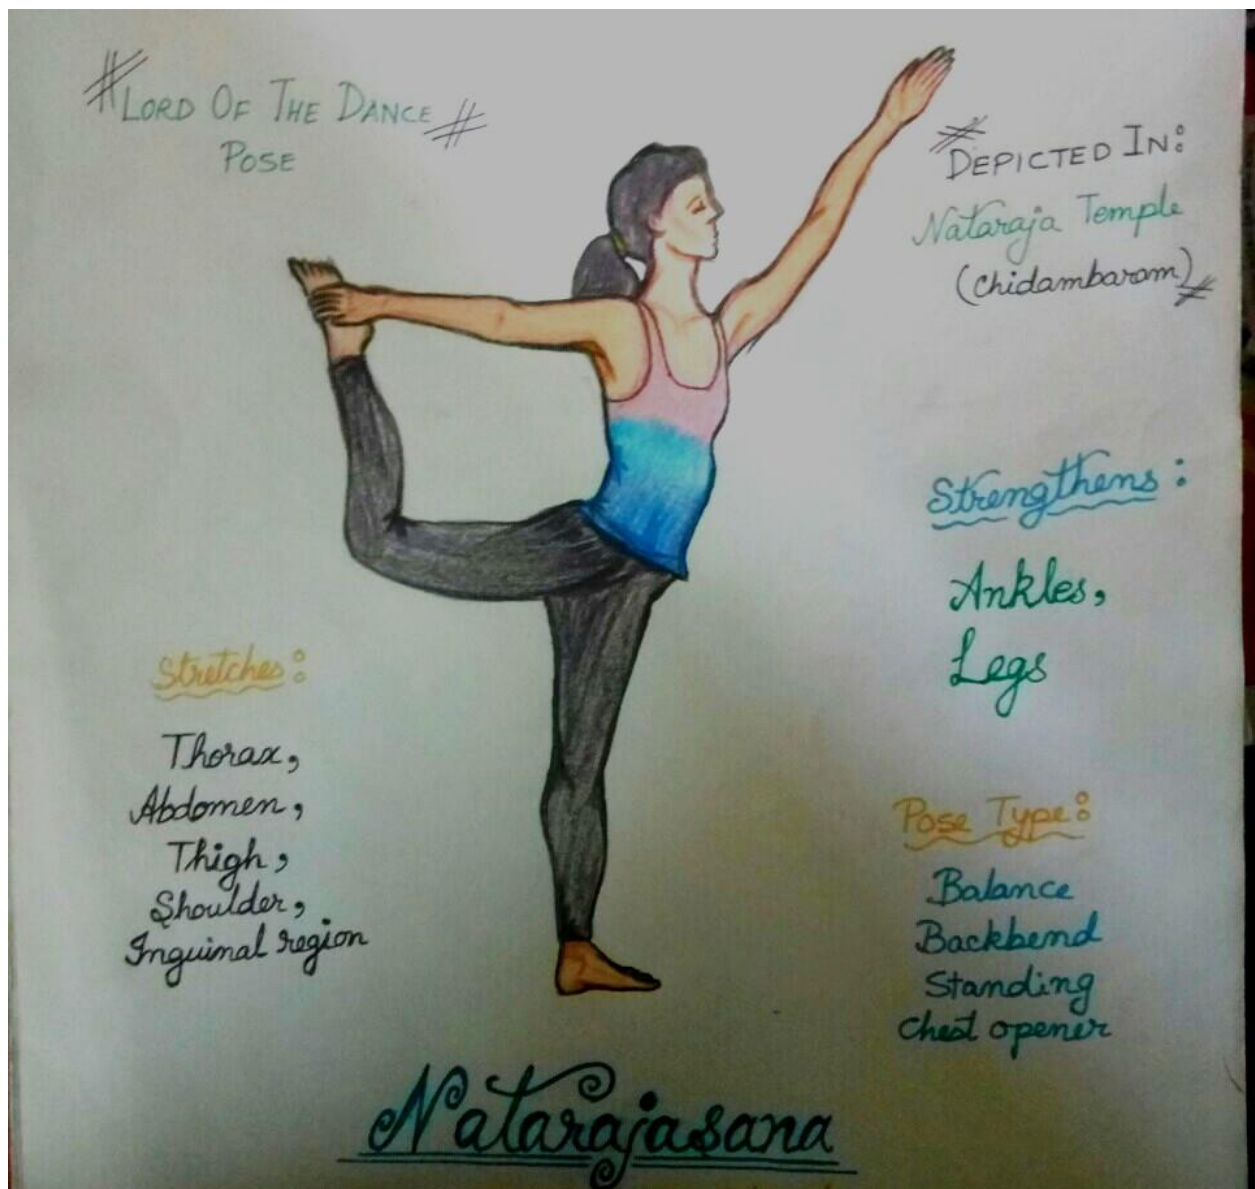 LORD OF THE DANCE
POSE
DEPICTED IN:
Nataraja Temple
(Chidambaram)
Strengthens:
Ankles,
Legs
Stretches:
Thorax,
Abdomen,
Thigh,
Shoulder,
Inguinal region
Pose Type:
Balance
Backbend
Standing
Chest opener
Natarajasana